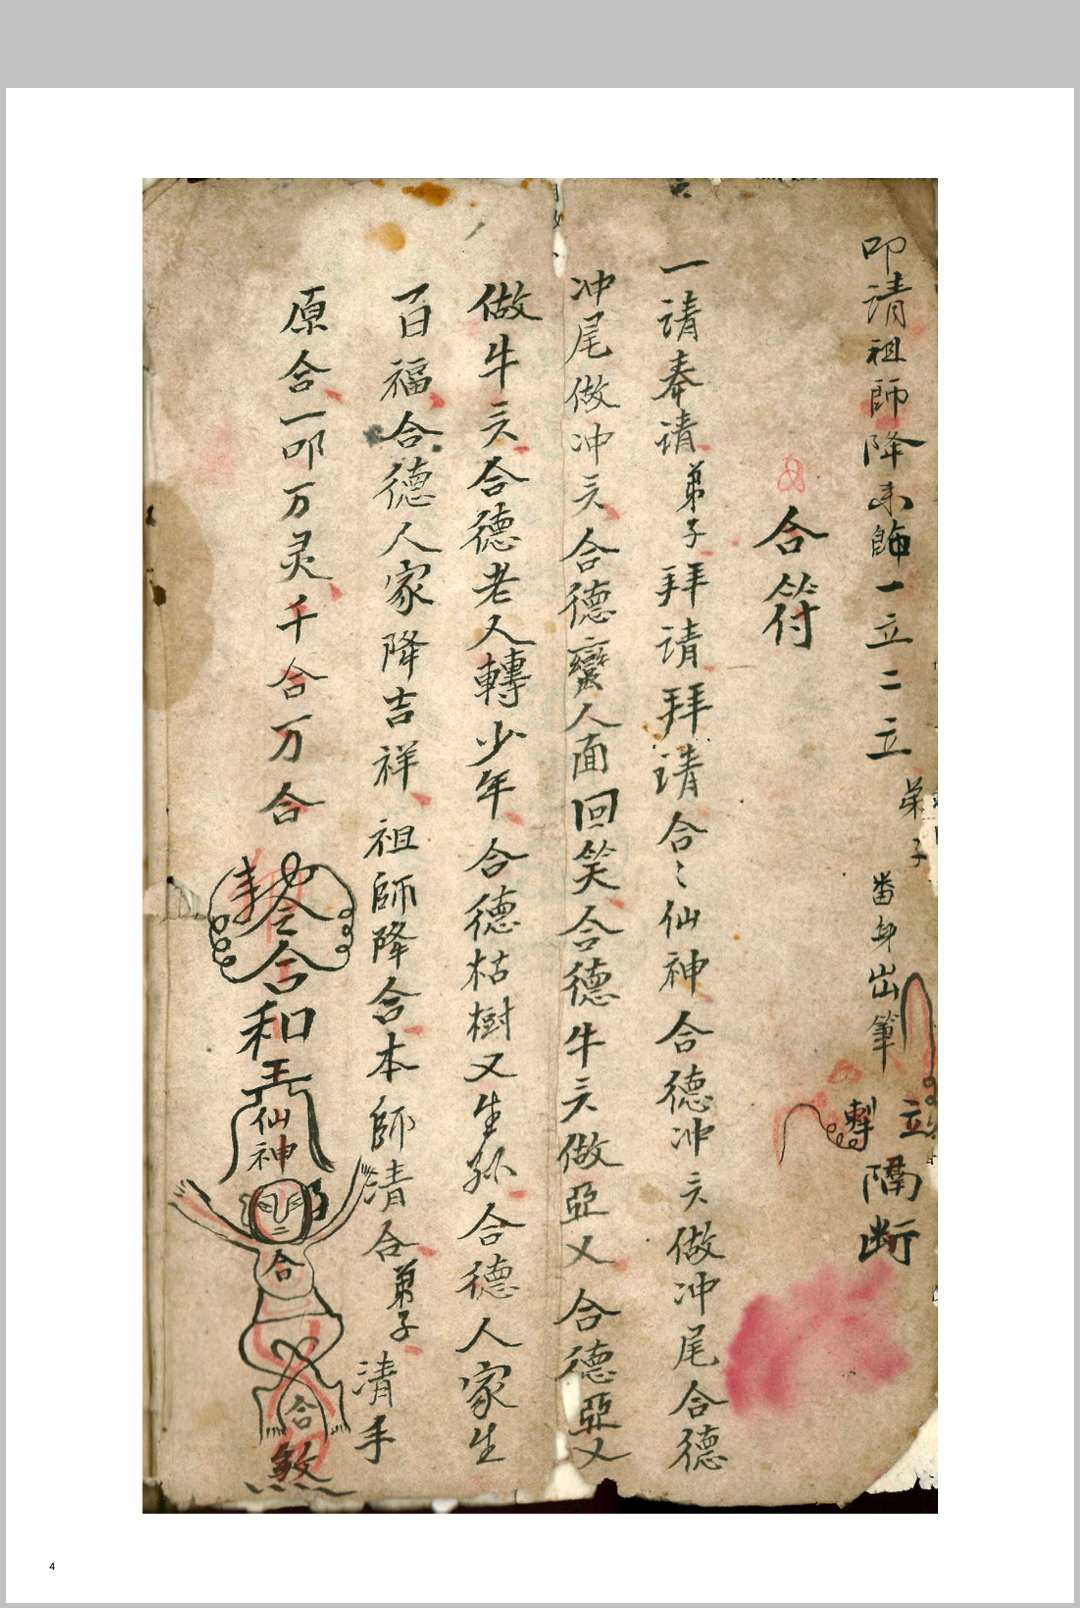 叩请祖師降来師一立二立弟子番身出筆
立
隔断
合符
一请奉请弟子拜请拜请合〻仙神合德冲亖做冲尾合德
冲尾做冲亖合德蛮人面回笑合德牛亖做亞乂合德亞乂
做牛亖合德老人轉少年合德枯樹又生孙合德人家生
百福合德人家降吉祥祖師降合本師清合弟子清手
原合一叩万灵千合万合
合和
仙神
合
合
煞
4